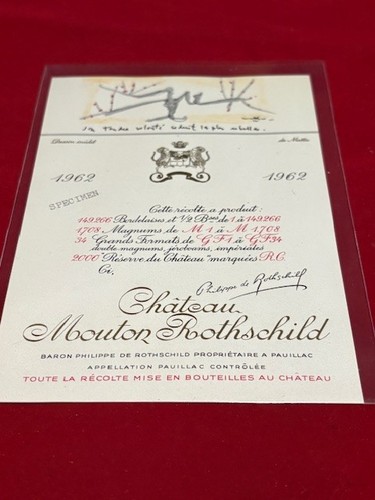 Dessin inédit de Matta
1962 1962
SPECIMEN
Cette récolte a produit :
149266 Bordelaises et ½ Bses de 1 à 149266
1708 Magnums de M 1 à M 1708
34 Grands Formats de G F 1 à G F 34
double magnums, jéroboams, impériales
2000 "Réserve du Château" marquées R.C.
Ci,
Philippe de Rothschild
Château
Mouton Rothschild
BARON PHILIPPE DE ROTHSCHILD PROPRIÉTAIRE A PAUILLAC
APPELLATION PAUILLAC CONTRÔLÉE
TOUTE LA RÉCOLTE MISE EN BOUTEILLES AU CHÂTEAU